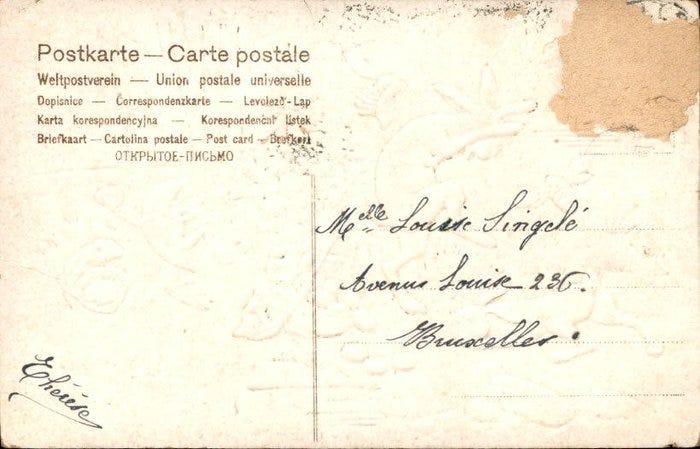 Postkarte — Carte postale
Weltpostverein — Union postale universelle
Dopisnice — Correspondenzkarte — Levelező-Lap
Karta korespondencyjna — Korespondenční lístek
Briefkaart — Cartolina postale — Post card — Brefkort
ОТКРЫТОЕ-ПИСЬМО
Melle Louise Singelé
Avenue Louise 236.
Bruxelles.
Thérèse